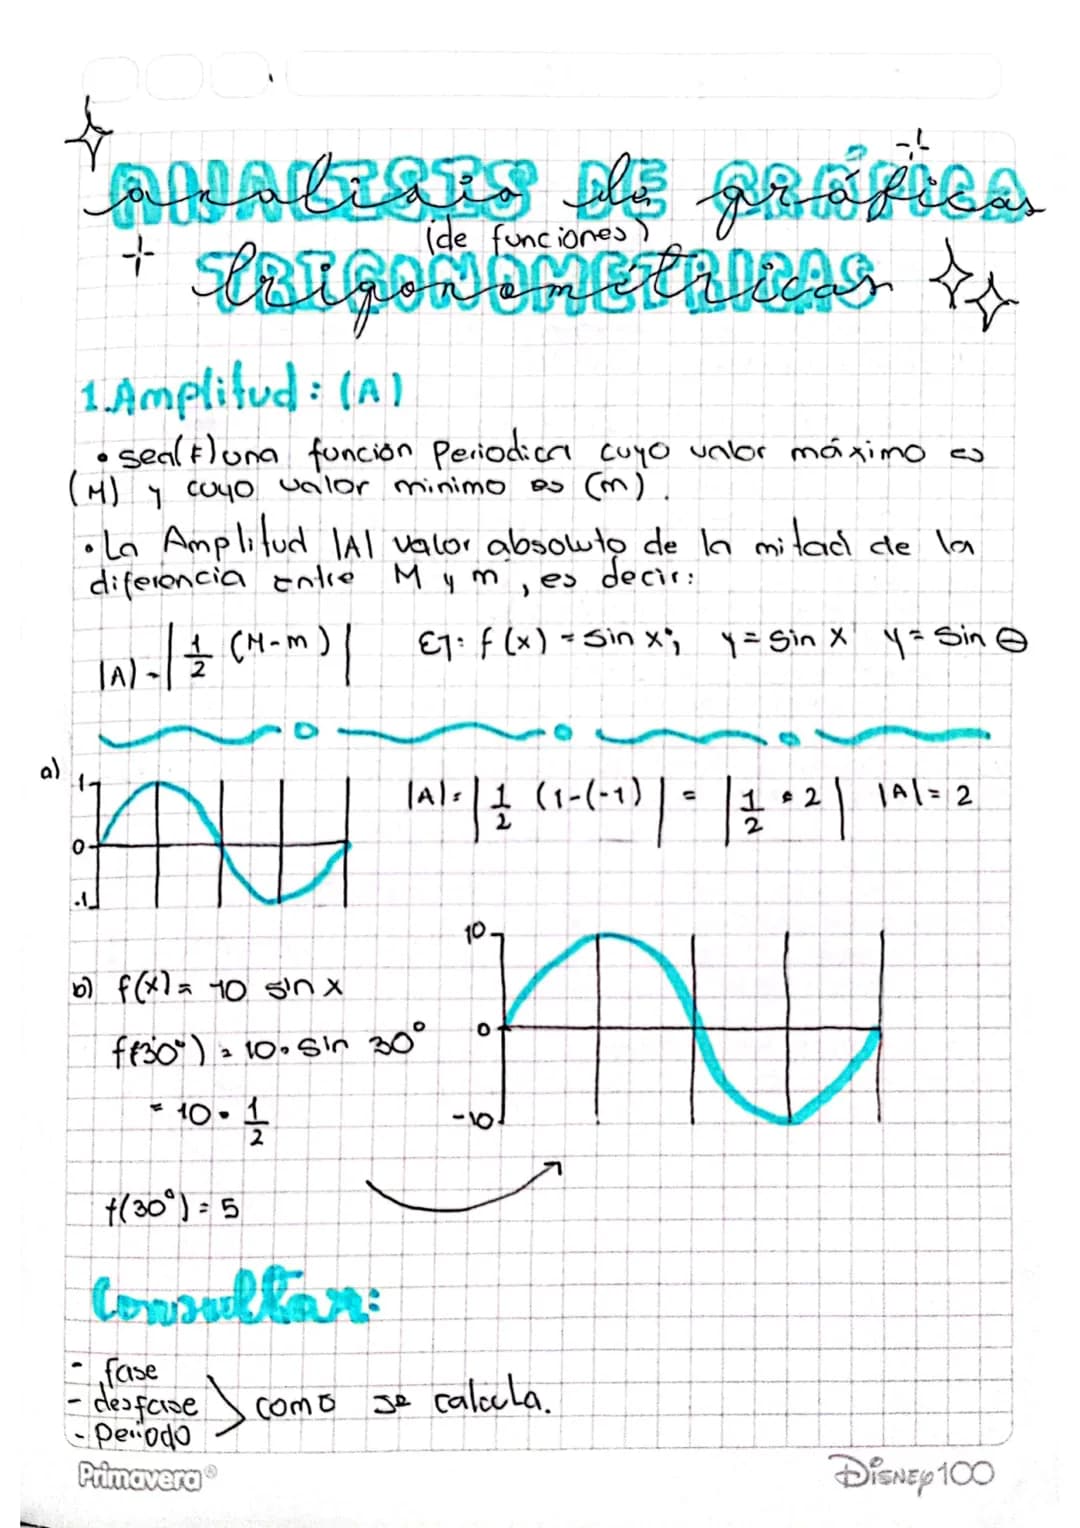 analisis de gráficas
(de funciones)
trigonométricas
1. Amplitud: (A)
• sea(f) una función Periodica cuyo valor máximo es
(M) y cuyo valor minimo es (m).
• La Amplitud |A| valor absoluto de la mitad de la
diferencia entre M y m, es decir:
|A| = | 1/2 (M-m) | EJ: f(x) = sin x; y = sin x y = sin θ
a)
1
0
-1
|A| = | 1/2 (1-(-1) | = | 1/2 • 2 | |A| = 2
b) f(x) = 10 sin x
f(30°) = 10 • sin 30°
= 10 • 1/2
f(30°) = 5
10
0
-10
Consultar:
- fase
- desfase
- periodo
como se calcula.
Primavera®
Disney100